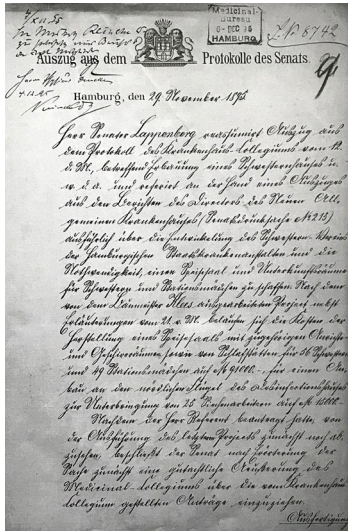 Medicinal-
Bureau
6-DEC 95
HAMBURG
J. № 6742
Auszug aus dem Protokolle des Senats.
Hamburg, den 29. November 1895.
Herr Senator Lappenberg resümirt Auszug aus
dem Protokoll des Krankenhaus-Collegiums vom 12.
d. M., betreffend Erbauung eines Schwesternhauses u.
w. d. a. und referirt an der Hand eines Auszuges
aus den Berichten des Directors des Neuen Allge-
gemeinen Krankenhauses (Senatsdrucksache № 213)
ausführlich über die Entwickelung des Schwestern-Vereins
der Hamburgischen Staatskrankenanstalten und die
Nothwendigkeit, einen Speisesaal und Unterkunftsräume
für Schwestern und Stationsmädchen zu schaffen. Nach dem
von dem Baumeister ausgearbeiteten Project nebst
Erläuterungen vom 21. v. M. belaufen sich die Kosten der
Herstellung eines Speisesaals mit zugehörigen Anricht-
und Geschirräumen, sowie von Schlafstätten für 56 Schwestern
und 49 Stationsmädchen auf M 91000.- für einen An-
bau an den nördlichen Flügel des Desinfectionshauses
zur Unterbringung von 25 Küchenarbeitern auf M 15000.-
Nachdem der Herr Referent beantragt hatte, von
der Ausführung des letzten Projects zunächst noch ab-
zusehen, beschließt der Senat nach Erörterung der
Sache zunächst eine gutachtliche Aeußerung des
Medicinal-Collegiums über die vom Krankenhaus-
Collegium gestellten Anträge einzuziehen.
Ausfertigung